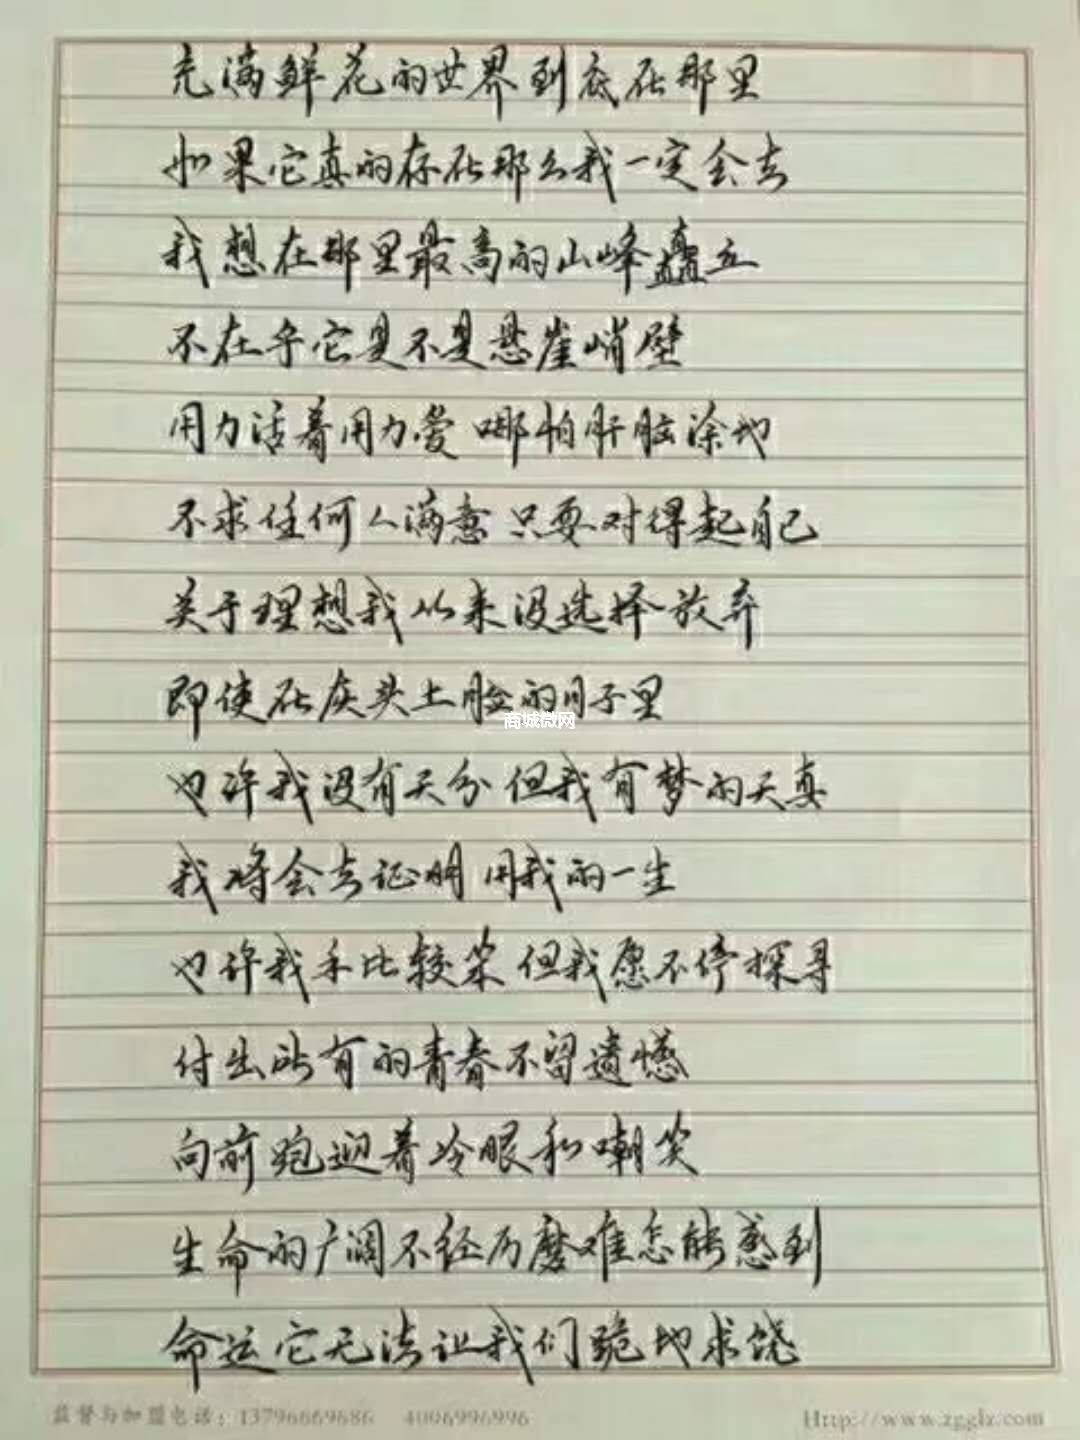 充满鲜花的世界到底在那里
如果它真的存在那么我一定会去
我想在那里最高的山峰矗立
不在乎它是不是悬崖峭壁
用力活着用力爱 哪怕肝脑涂地
不求任何人满意 只要对得起自己
关于理想我从来没选择放弃
即使在灰头土脸的日子里
商城微网
也许我没有天分 但我有梦的天真
我将会去证明 用我的一生
也许我手比较笨 但我愿不停探寻
付出所有的青春不留遗憾
向前跑迎着冷眼和嘲笑
生命的广阔不经历磨难怎能感到
命运它无法让我们跪地求饶
监督与加盟电话：13796669686 4006996996
Http://www.zgglz.com